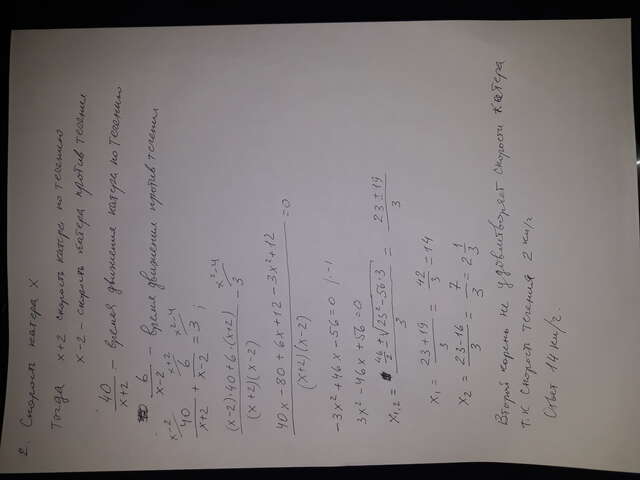 2. Скорость катера x
Тогда x+2 скорость катера по течению
x-2 - скорость катера против течения
40/(x+2) - время движения катера по течению
6/(x-2) - время движения против течения
x-2 x+2 x²-4
40/(x+2) + 6/(x-2) = 3 ;
x²-4
((x-2)·40+6·(x+2))/((x+2)(x-2)) - 3
(40x-80+6x+12-3x²+12)/((x+2)(x-2)) =0
-3x²+46x-56=0 |·-1
3x²-46x+56=0
x₁,₂ = (46/2 ± √(23²-56·3))/3 = (23±19)/3
x₁ = (23+19)/3 = 42/3 = 14
x₂ = (23-16)/3 = 7/3 = 2 1/3
Второй корень не удовлетворяет скорости катера
т.к скорость течения 2 км/ч
Ответ 14 км/ч.